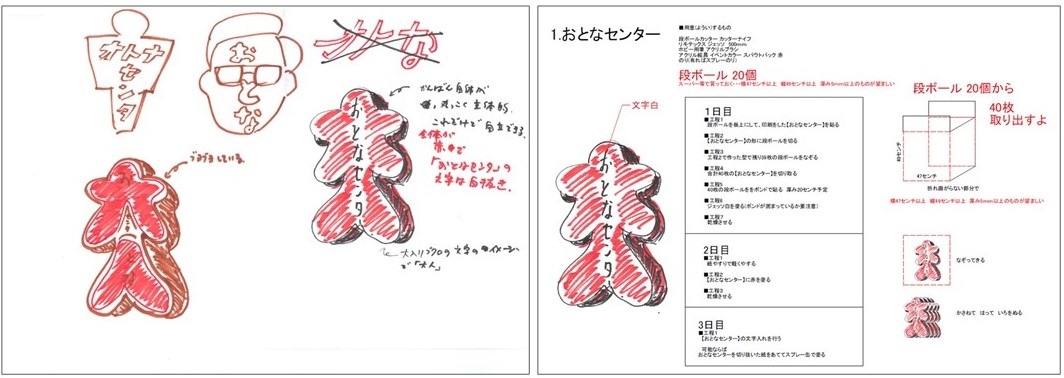 オトナ
センタ
おとな
オトな
ブヨブヨしている
おとなセンター
かんばん自体が
これだけで自立できる
全体が
赤で
「おとなセンター」の
文字は白抜き
大入りブクロの文字のイメージ
で「大人」
1.おとなセンター
■用意(ようい)するもの
段ボールカッター カッターナイフ
リモテックス ジェッソ 500mm
ホビー用筆 アクリルブラシ
アクリル絵具 イベントカラー スパウトパック 赤
のり(有ればスプレーのり)
段ボール 20個
スーパー等で貰っておく…横47センチ以上 縦49センチ以上 厚み5mm以上のものが望ましい
文字白
おとなセンター
1日目
■工程1
段ボールを板上にして、印刷をした【おとなセンター】を貼る
■工程2
【おとなセンター】の形に段ボールを切る
■工程3
工程2で作った型で残り39枚の段ボールをなぞる
■工程4
合計40枚の【おとなセンター】を切り取る
■工程5
40枚の段ボールををボンドで貼る 厚み20センチ予定
■工程6
ジェッソ白を塗る(ボンドが固まっているか要注意)
■工程7
乾燥させる
2日目
■工程1
紙やすりで軽くやする
■工程2
【おとなセンター】に赤を塗る
■工程3
乾燥させる
3日目
■工程1
【おとなセンター】の文字入れを行う
可能ならば
おとなセンターを切り抜いた紙をあててスプレー缶で塗る
段ボール 20個から
40枚
取り出すよ
49センチ
47センチ
折れ曲がらない部分で
横47センチ以上 縦49センチ以上 厚み5mm以上のものが望ましい
なぞってきる
かさねて はって いろをぬる